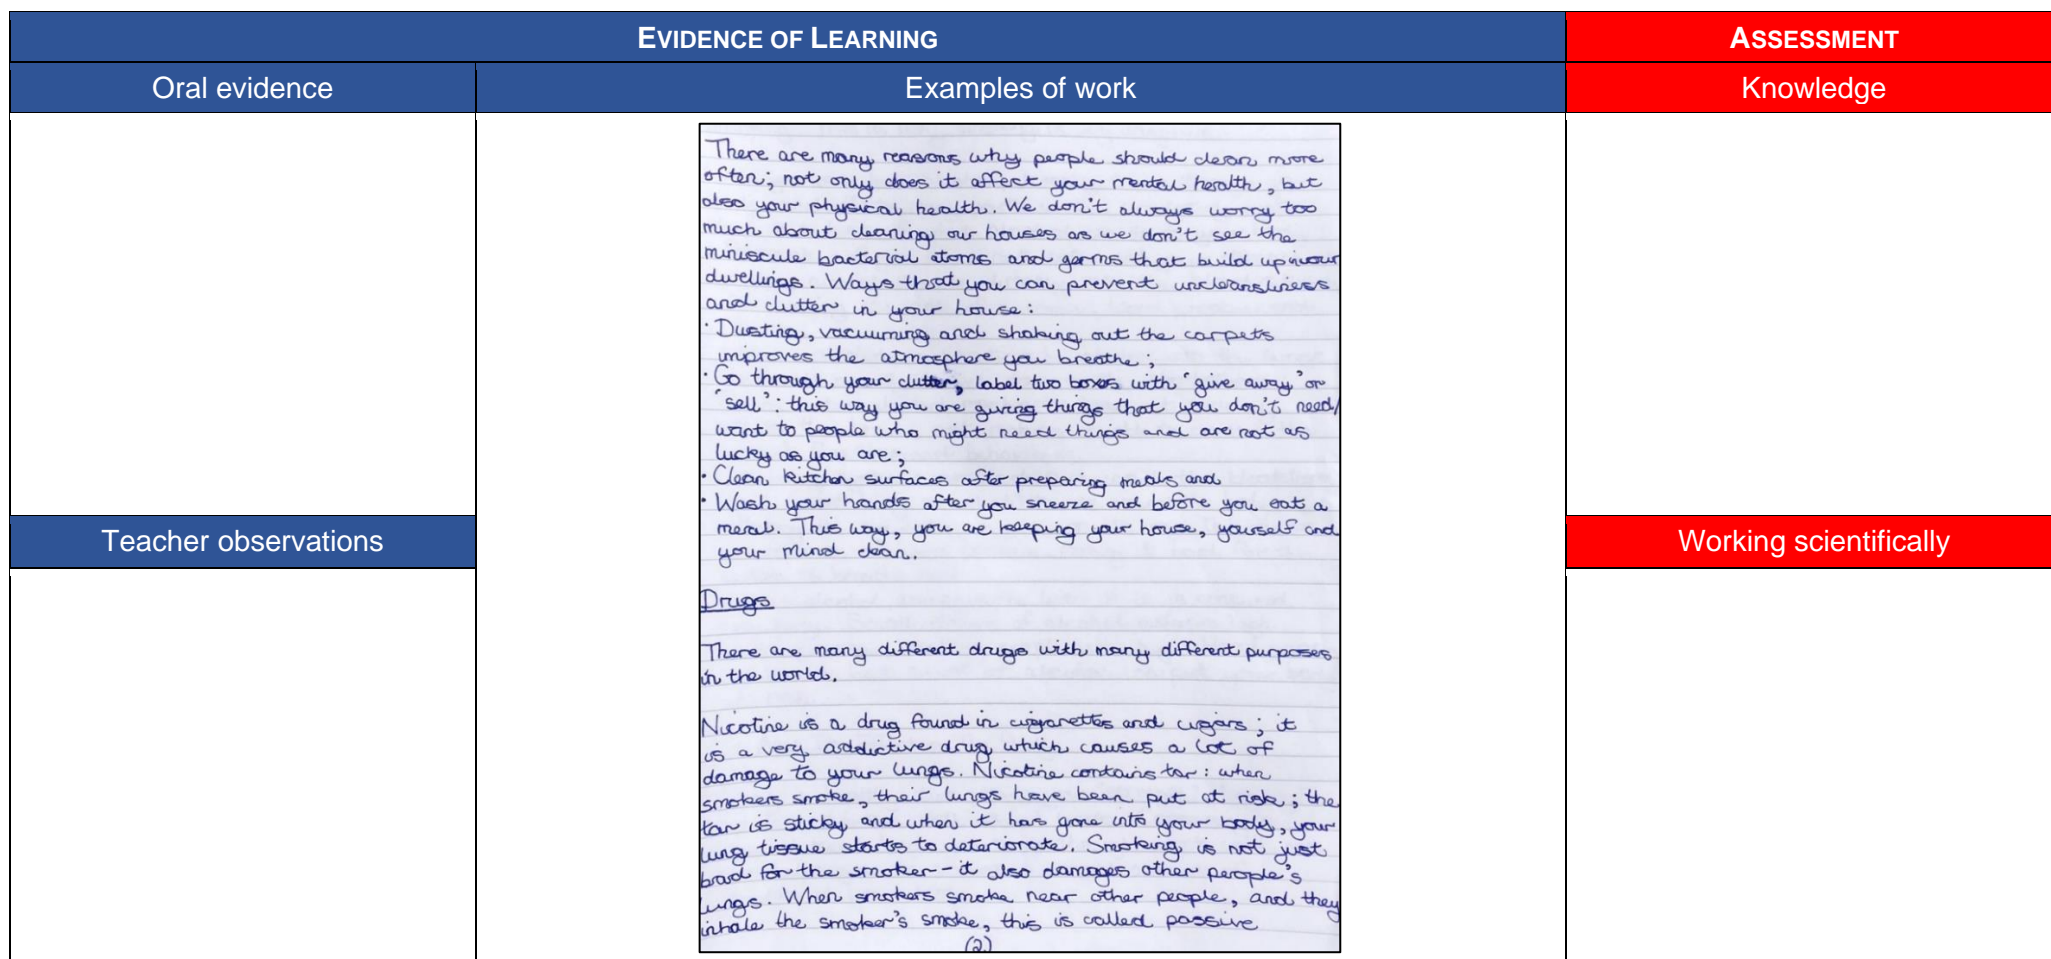 EVIDENCE OF LEARNING
ASSESSMENT
Oral evidence
Examples of work
Knowledge
There are many reasons why people should clean more
often; not only does it affect your mental health, but
also your physical health. We don't always worry too
much about cleaning our houses as we don't see the
miniscule bacterial atoms and germs that build up in our
dwellings. Ways that you can prevent uncleansliness
and clutter in your house:
· Dusting, vacuuming and shaking out the carpets
improves the atmosphere you breathe;
· Go through your clutter, label two boxes with 'give away' or
'sell': this way you are giving things that you don't need/
want to people who might need things and are not as
lucky as you are;
· Clean kitchen surfaces after preparing meals and
· Wash your hands after you sneeze and before you eat a
meal. This way, you are keeping your house, yourself and
your mind clean.
Teacher observations
Working scientifically
Drugs
There are many different drugs with many different purposes
in the world.
Nicotine is a drug found in cigarettes and cigars; it
is a very addictive drug which causes a lot of
damage to your lungs. Nicotine contains tar: when
smokers smoke, their lungs have been put at risk; the
tar is sticky and when it has gone into your body, your
lung tissue starts to deteriorate. Smoking is not just
bad for the smoker - it also damages other people's
lungs. When smokers smoke near other people, and they
inhale the smoker's smoke, this is called passive
(2)